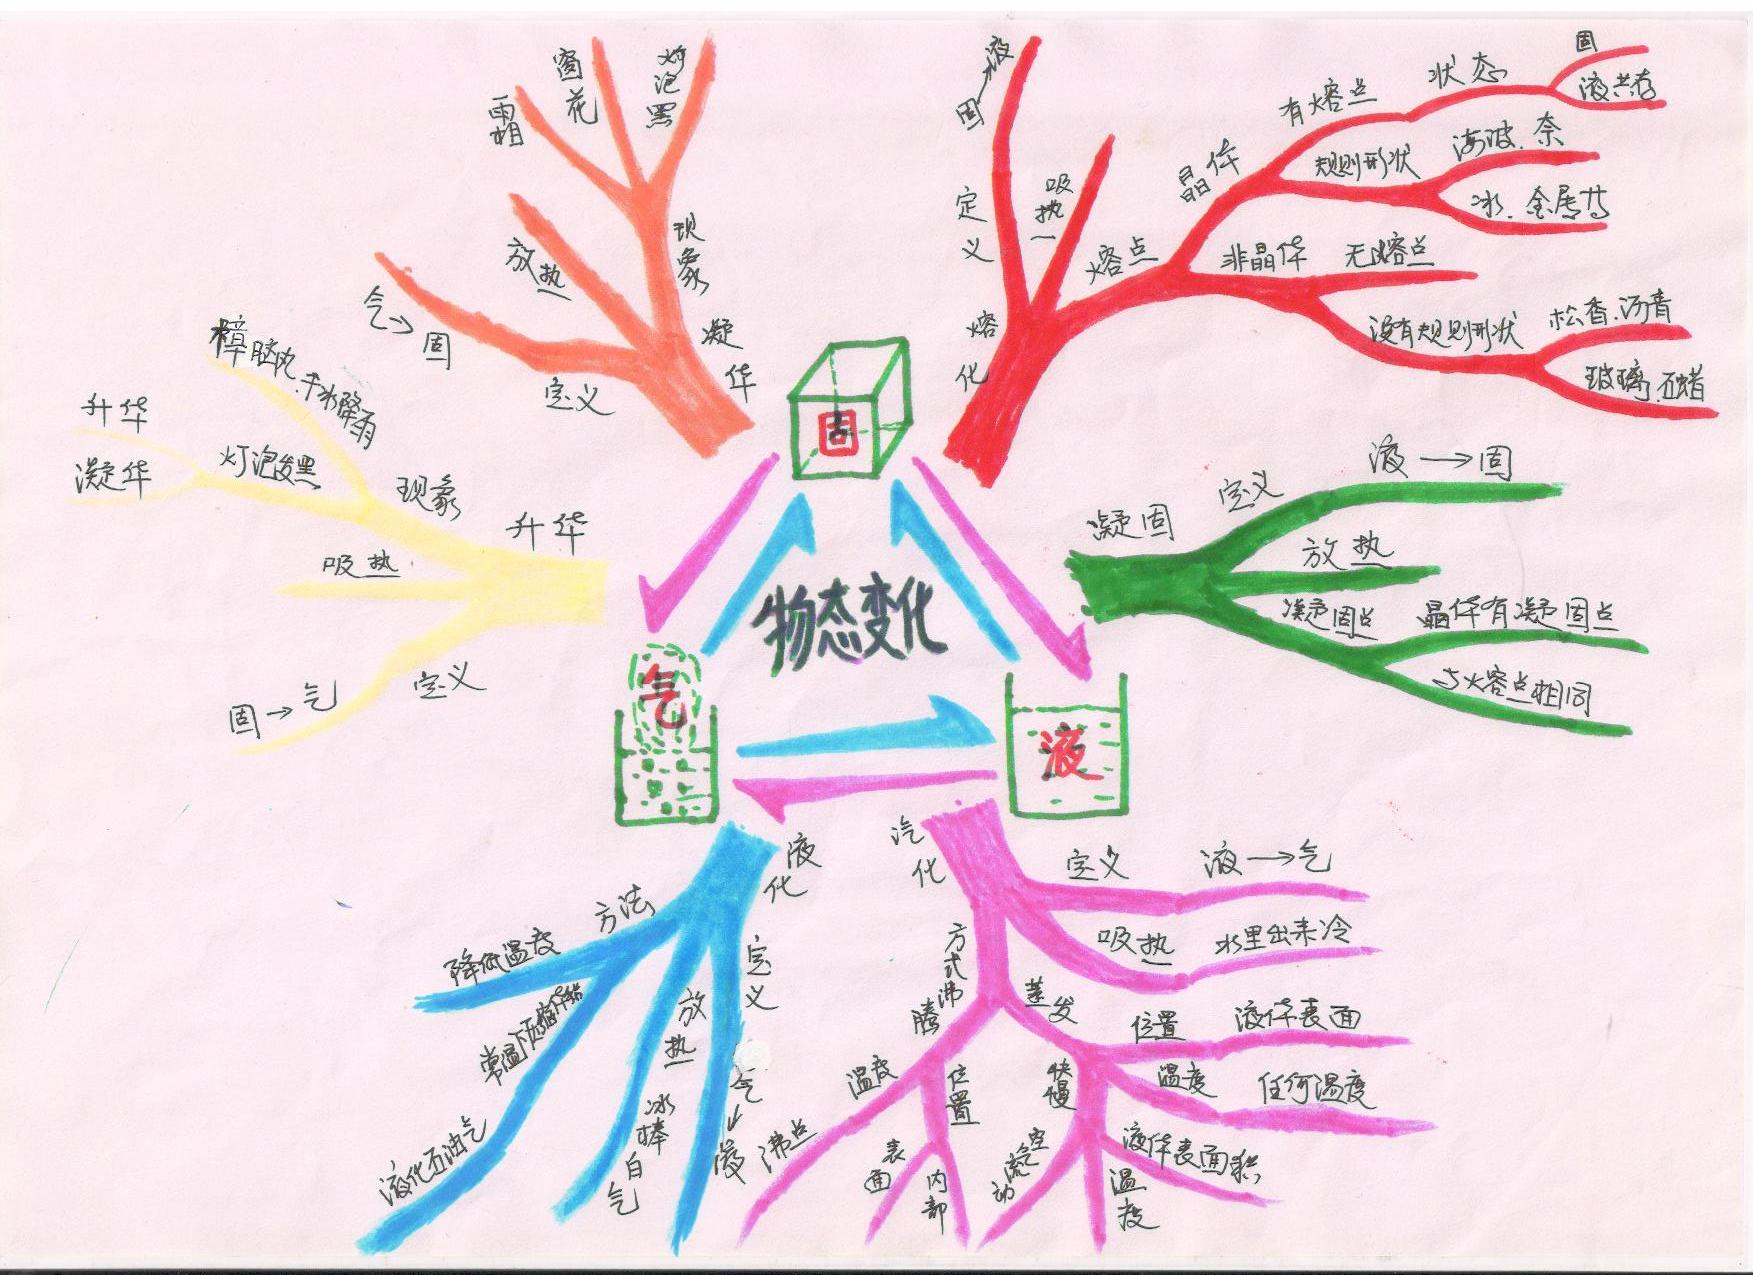 物态变化
固
液
气
熔化
定义
固→液
吸热
熔点
晶体
有熔点
状态
固
液共存
规则形状
海波、奈
冰、金属等
非晶体
无熔点
没有规则形状
松香、沥青
玻璃、石蜡
凝固
定义
液→固
放热
凝固点
晶体有凝固点
与火容点相同
汽化
定义
液→气
吸热
水里出来冷
方式
蒸发
位置
液体表面
温度
任何温度
快慢
液体表面积
温度
空气流动
沸腾
位置
表面
内部
温度
沸点
液化
定义
气→液
放热
冰棒白气
方法
降低温度
常温下压缩体积
液化石油气
升华
现象
樟脑丸
灯泡发黑
升华
凝华
吸热
定义
固→气
凝华
现象
霜
窗花
灯泡黑
放热
定义
气→固